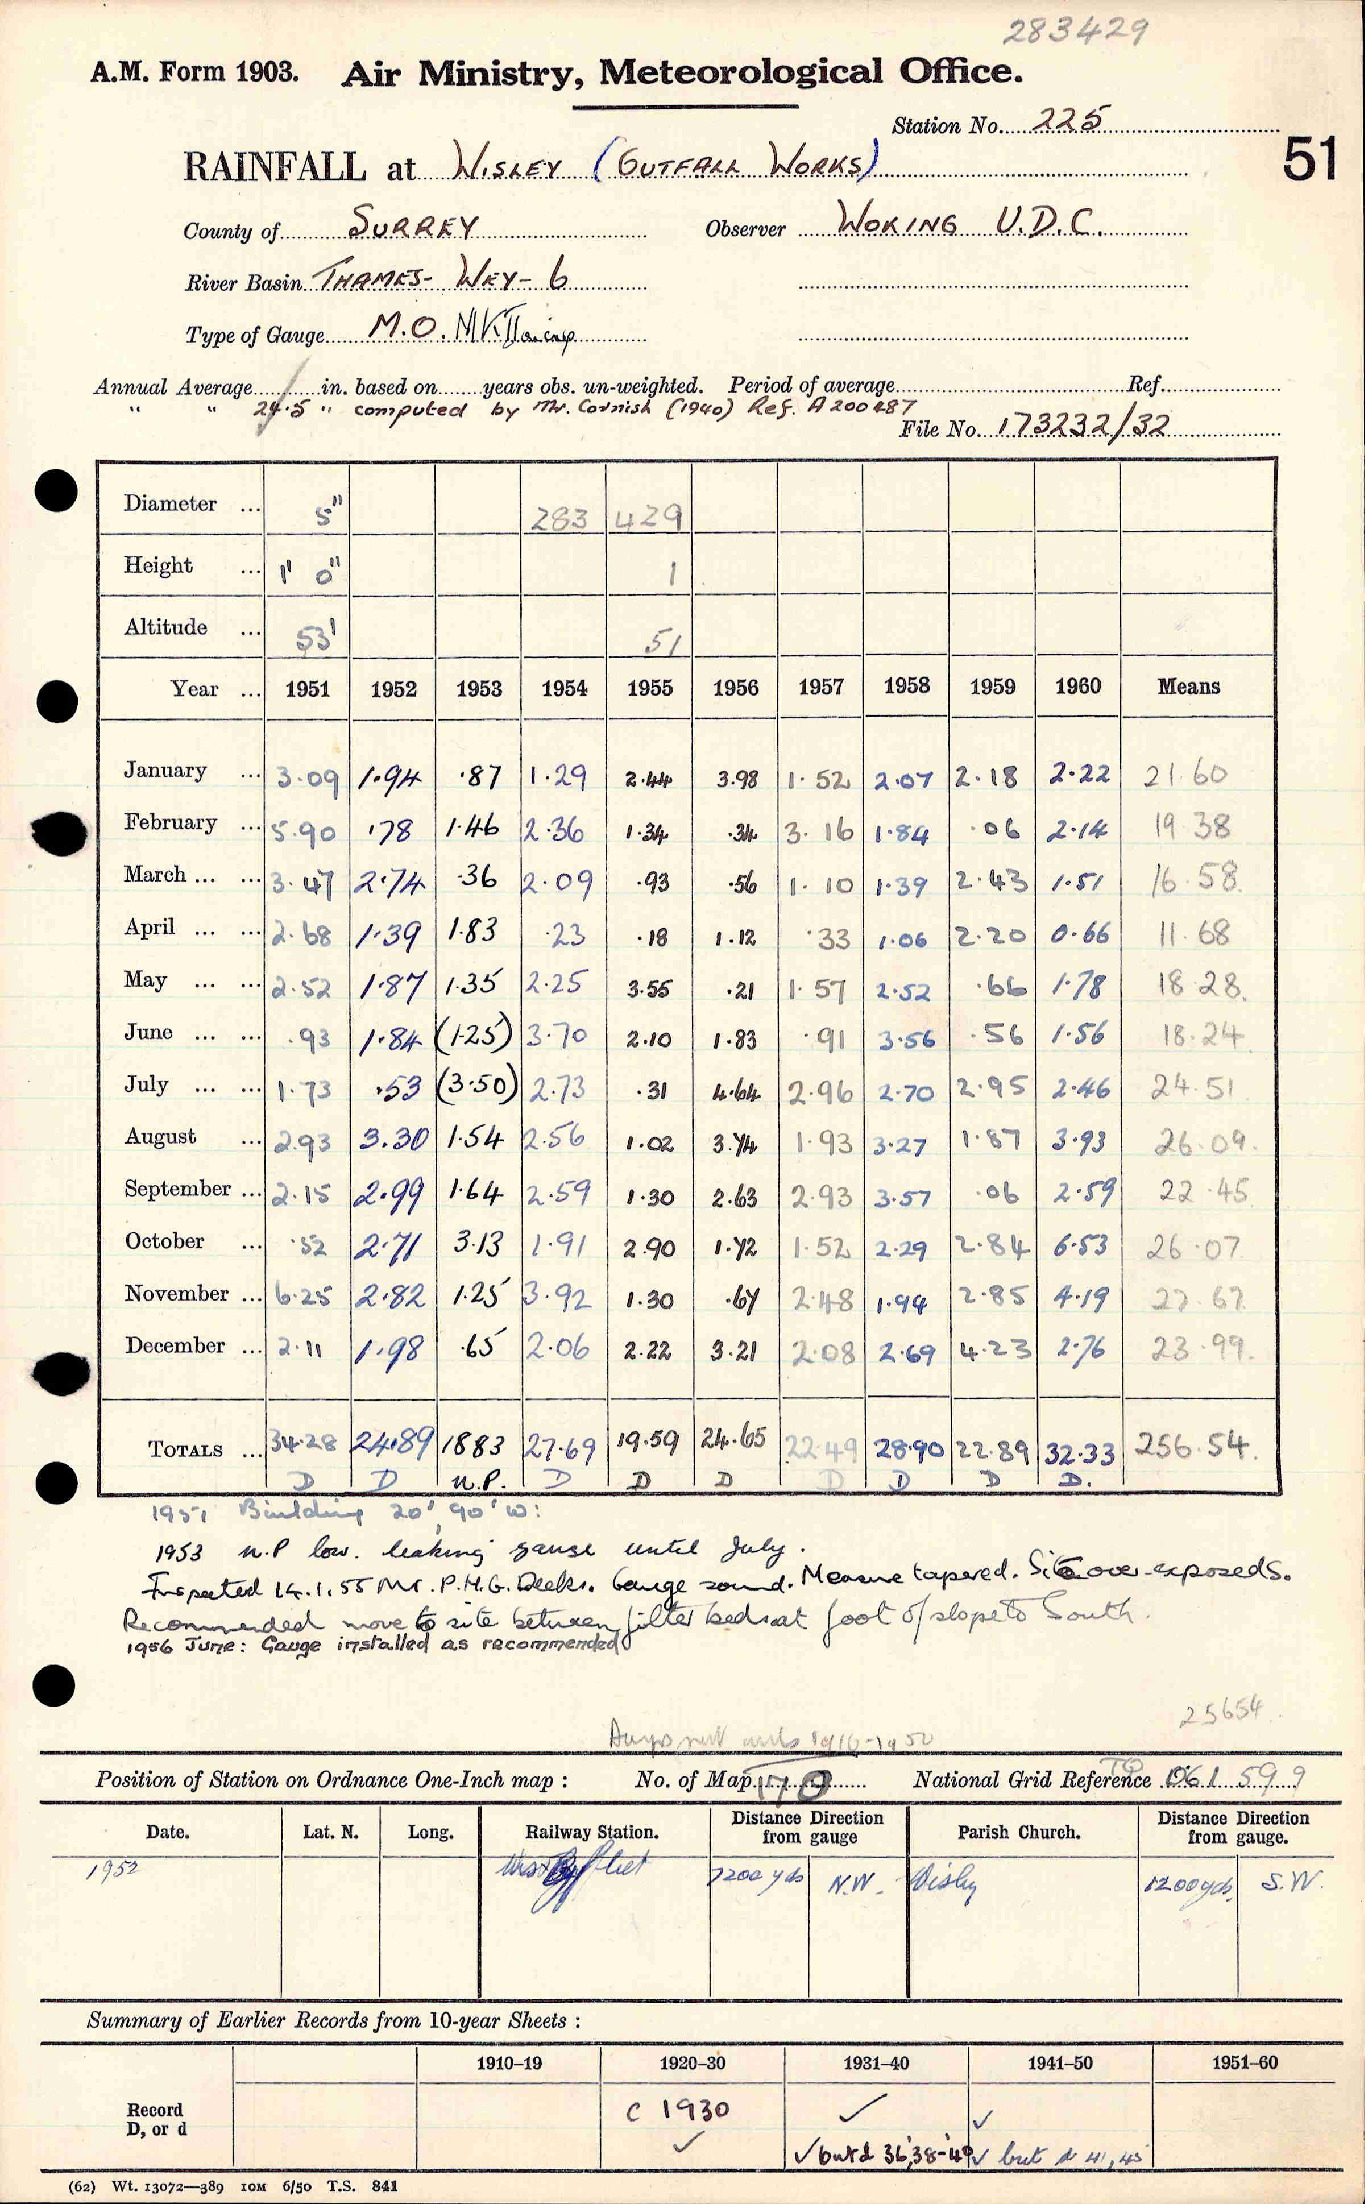 283429
A.M. Form 1903. Air Ministry, Meteorological Office.
Station No. 225
51
RAINFALL at WISLEY (OUTFALL WORKS)
County of SURREY Observer WOKING U.D.C.
River Basin THAMES- WEY- 6
Type of Gauge M.O. MKII
Annual Average in. based on years obs. un-weighted. Period of average Ref.
" " 24.5 " computed by Mr. Cornish (1940) Ref. A200487
File No. 173232/32
Diameter ... 5" 283 429
Height ... 1' 0" 1
Altitude ... 53' 51
Year ... 1951 1952 1953 1954 1955 1956 1957 1958 1959 1960 Means
January ... 3.09 1.94 .87 1.29 2.44 3.98 1.52 2.07 2.18 2.22 21.60
February ... 5.90 .78 1.46 2.36 1.34 .34 3.16 1.84 .06 2.14 19.38
March ... ... 3.47 2.74 .36 2.09 .93 .56 1.10 1.39 2.43 1.51 16.58
April ... ... 2.68 1.39 1.83 .23 .18 1.12 .33 1.06 2.20 0.66 11.68
May ... ... 2.52 1.87 1.35 2.25 3.55 .21 1.57 2.52 .66 1.78 18.28
June ... ... .93 1.84 (1.25) 3.70 2.10 1.83 .91 3.56 .56 1.56 18.24
July ... ... 1.73 .53 (3.50) 2.73 .31 4.64 2.96 2.70 2.95 2.46 24.51
August ... 2.93 3.30 1.54 2.56 1.02 3.74 1.93 3.27 1.87 3.93 26.09
September ... 2.15 2.99 1.64 2.59 1.30 2.63 2.93 3.57 .06 2.59 22.45
October ... .52 2.71 3.13 1.91 2.90 1.72 1.52 2.29 2.84 6.53 26.07
November ... 6.25 2.82 1.25 3.92 1.30 .67 2.48 1.94 2.85 4.19 27.67
December ... 2.11 1.98 .65 2.06 2.22 3.21 2.08 2.69 4.23 2.76 23.99
TOTALS ... 34.28 24.89 1883 27.69 19.59 24.65 22.49 28.90 22.89 32.33 256.54
D D N.P. D D D D D D D.
1951 Building 20', 90' W:
1953 N.P low. leaking gauge until July.
Inspected 14.1.55 Mr. P.H.G. Deeks. Gauge sound. Measure tapered. Site over-exposed S.
Recommended move to site between filter beds at foot of slope to South.
1956 June: Gauge installed as recommended
25654
1916-1950
Position of Station on Ordnance One-Inch map : No. of Map 170 National Grid Reference TQ 061 599
Date. Lat. N. Long. Railway Station. Distance from gauge Direction Parish Church. Distance Direction from gauge.
1952 West Byfleet 7200 yds N.W. Wisley 1200 yds. S.W.
Summary of Earlier Records from 10-year Sheets :
1910–19 1920–30 1931–40 1941–50 1951–60
Record D, or d c 1930 ✓ ✓ ✓
✓ but d 36, 38-40 ✓ but N 41, 45
(62) Wt. 13072—389 10M 6/50 T.S. 841